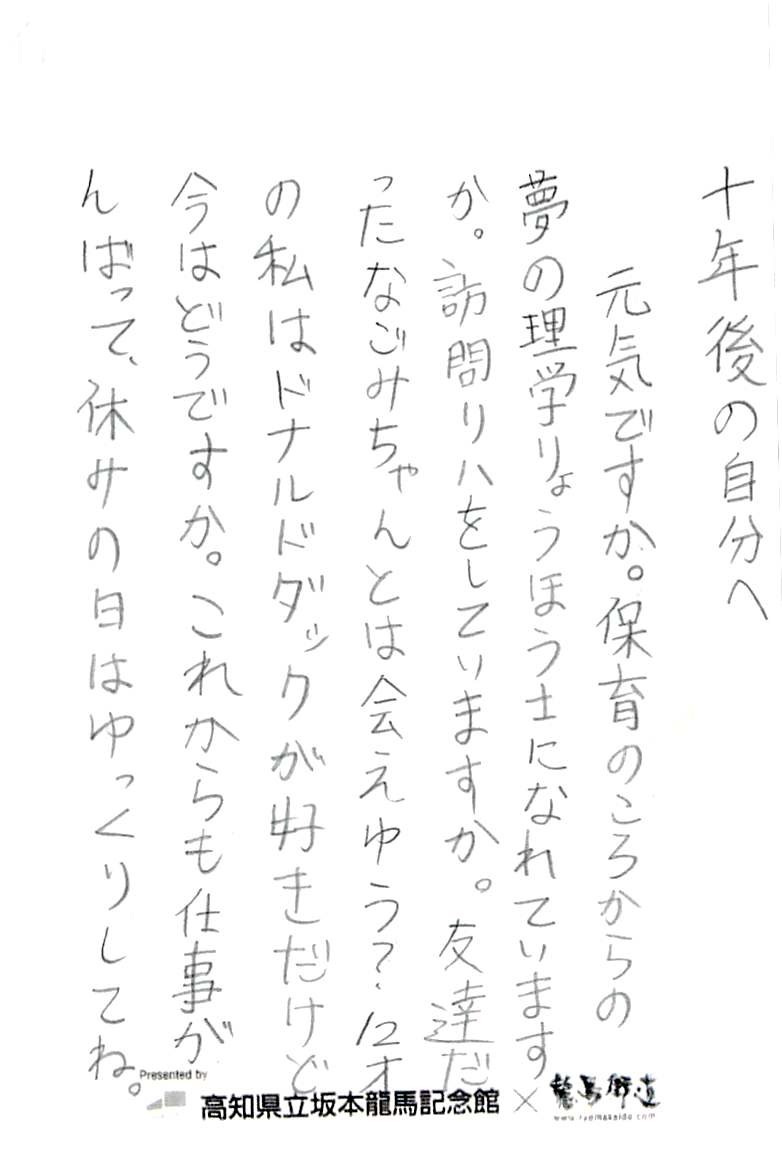 十年後の自分へ
元気ですか。保育のころからの
夢の理学りょうほう士になれています
か。訪問リハをしていますか。友達だ
ったなごみちゃんとは会えゆう?12才
の私はドナルドダックが好きだけど
今はどうですか。これからも仕事が
んばって、休みの日はゆっくりしてね。
Presented by
高知県立坂本龍馬記念館×龍馬街道
www.ryomakaido.com